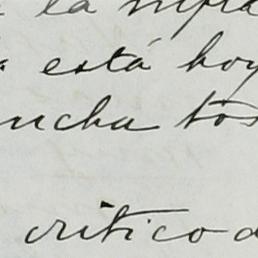 la
está hoy
mucha tos
critico